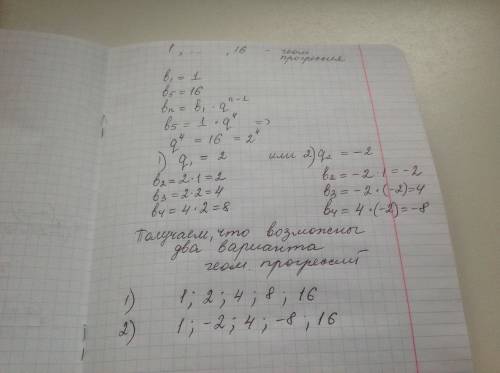 1, ... , 16 - геом
прогрессия
b₁ = 1
b₅ = 16
bₙ = b₁ · qⁿ⁻¹
b₅ = 1 · q⁴ =>
q⁴ = 16 = 2⁴
1) q₁ = 2 или 2) q₂ = -2
b₂ = 2·1 = 2 b₂ = -2·1 = -2
b₃ = 2·2 = 4 b₃ = -2·(-2) = 4
b₄ = 4·2 = 8 b₄ = 4·(-2) = -8
Получаем, что возможны
два варианта
геом прогрессий
1) 1; 2; 4; 8; 16
2) 1; -2; 4; -8; 16